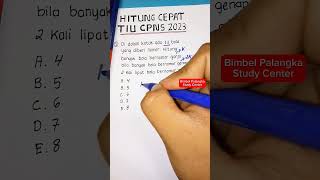 bila banyak b
2 Kali lipat
A. 4
B. 5
C. 6
D. 7
E. 8
HITUNG CEPAT
TIU CPNS 2023
Di dalam kotak ada 12 bola
yang diberi nomor. Hitung
banyak bola bernomor ganjil
bila banyak bola bernomor
2 kali lipat bola bernomor
A. 4
B. 5
C. 6
D. 7
E. 8
Bimbel Palangka
Study Center
Bimbel Palangka
Study Center